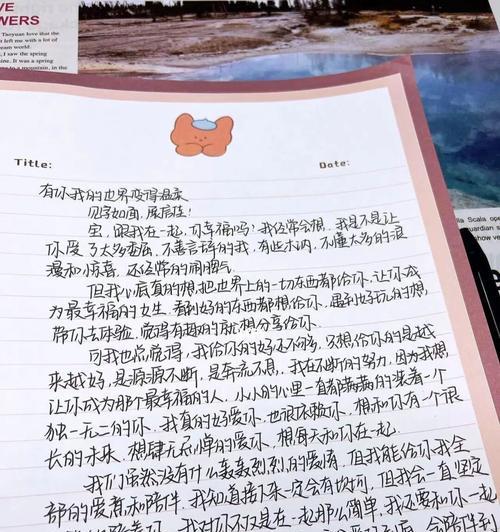 VE
WERS
Taoyuan love that the
t left me with a lot of
ream world.
, I saw the spring
ine. It was a spring
to a mountain, in the
Title:
Date:
la Scala opera
guardian s
有你我的世界变得温柔
见字如面,展信佳!
宝,跟我在一起,你幸福吗?我经常会想,我是不是让
你受了太多委屈,不善言辞的我,有些木讷,不懂太多的浪
漫和惊喜,还经常的闹脾气
但我心底真的想把世界上的一切东西都给你,让你成
为最幸福的女生,看到好的东西都想给你,遇到好玩的想
带你去体验,觉得有趣的就想分享给你.
可我也总觉得,我给你的好还不够,只想给你的是越
来越好,是源源不断,是车流不息,我在不断的努力,因为我想
让你成为那个最幸福的人,小小的心里一直都满满的装着一个
独一无二的你.我真的好爱你,也很依赖你,想和你有个很
长的未来,想肆无忌惮的爱你,想每天和你在一起.
我们虽然没有什么轰轰烈烈的爱情,但我能给你我全
部的爱意和陪伴,我知道接下来一定会有坎坷,但我会一直坚定
我对你不只是在一起那么简单,我还要和你一起